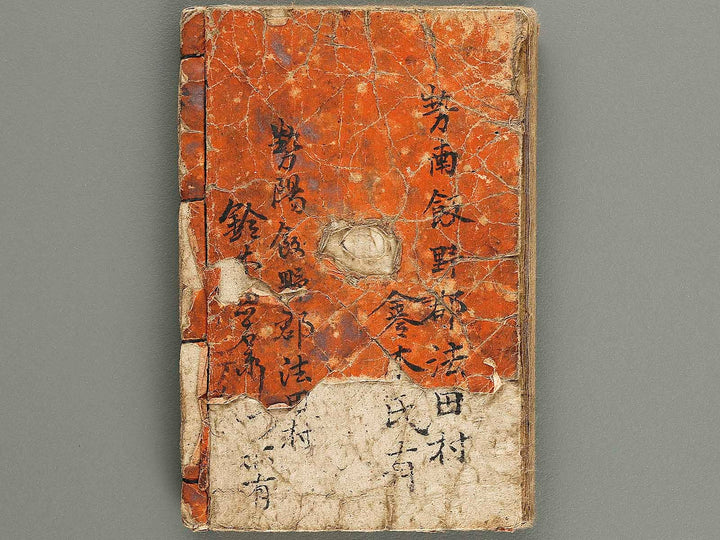 勢南飯野郡法田村
鈴木氏有
勢陽飯野郡法田村
鈴木
所有